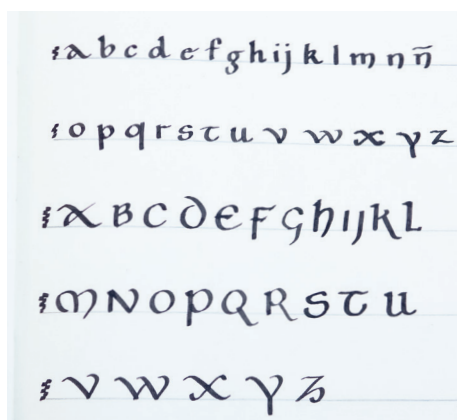 a b c d e f g h i j k l m n ñ
o p q r s t u v w x y z
A B C D E F G H I J K L
M N O P Q R S T U
V W X Y Z